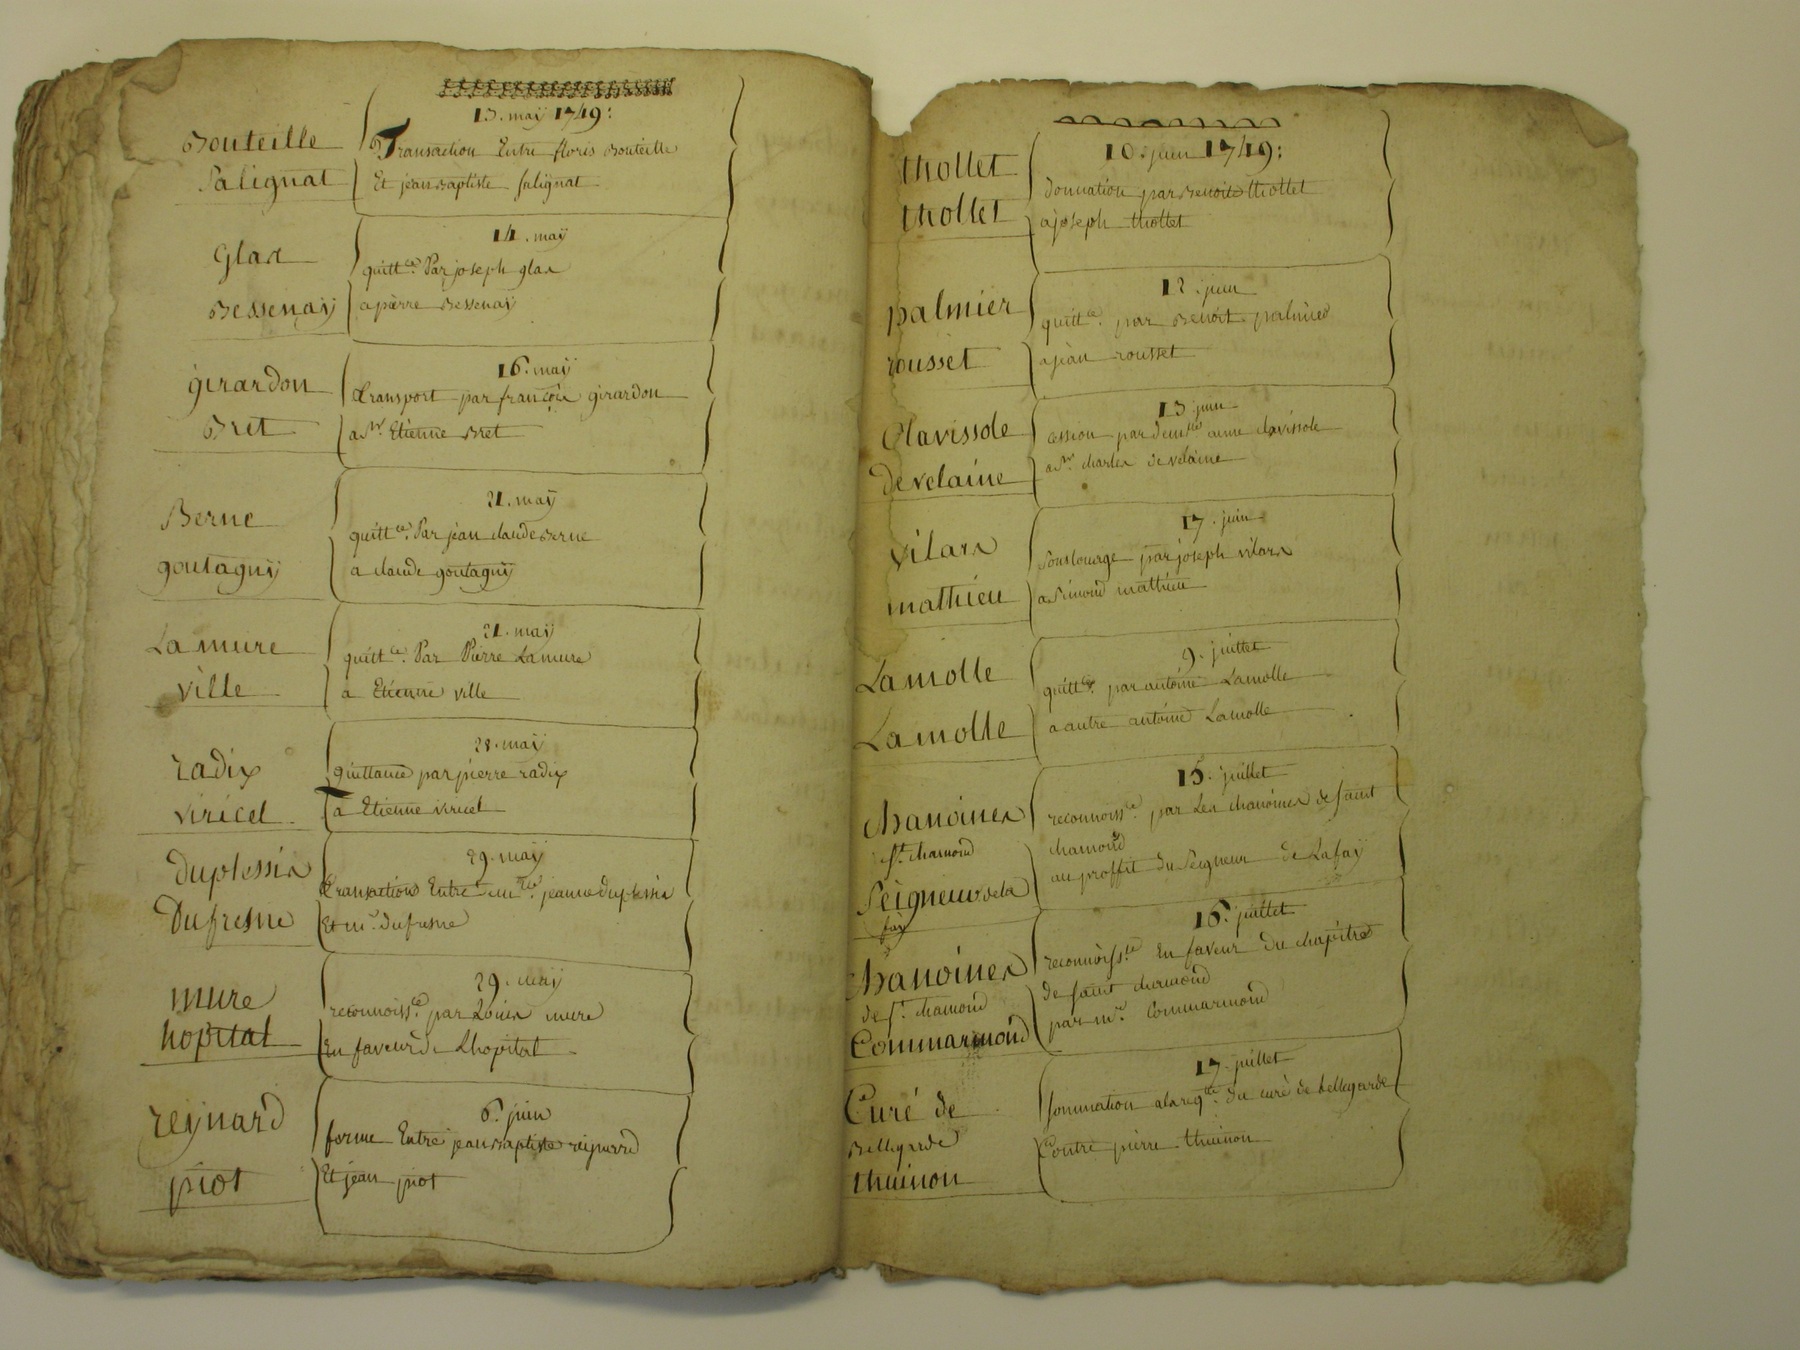 13. maÿ 1749:
Bouteille
Salignat
Transaction Entre floris Bouteille
Et jean Baptiste Salignat
14. maÿ
Glas
Bessenaÿ
quitt.ce Par joseph glas
a pierre Bessenaÿ
16. maÿ
girardon
Bret
transport par françois girardon
a Sr. Etienne Bret
21. maÿ
Berne
goutagnÿ
quitt.ce Par jean claude Berne
a claude goutagnÿ
21. maÿ
La mure
ville
quitt.ce Par Pierre La mure
a Etienne ville
28. maÿ
radix
viricel
quittance par pierre radix
a Etienne viricel
29. maÿ
Duplessis
Dufresne
transactions Entre jeanne duplessis
Et mr. dufresne
29. maÿ
mure
hopital
reconnoiss.ce par Louis mure
En faveur de Lhopital
6. juin
reÿnard
piot
ferme Entre jean Baptiste reÿnard
Et jean piot
10. juin 1749:
thollet
thollet
donnation par Benoite thollet
a joseph thollet
12. juin
palmier
rousset
quitt.ce par Benoit palmier
a jean rousset
13. juin
Clavissole
devclaine
cession par demlle anne clavissole
a Sr. charles devclaine
17. juin
vilars
mathieu
Souslouage par joseph vilars
a Simond mathieu
9. juillet
Lamolle
Lamolle
quitt.ce par antoine Lamolle
a autre antoine Lamolle
15. juillet
Chanoines
St. chamond
Seigneur de la
faÿ
reconnoiss.ce par Les chanoines de Saint
chamond
au proffit du Seigneur de Lafaÿ
16. juillet
Chanoines
de St. chamond
Commarmond
reconnoiss.ce En faveur du chapitre
de Saint chamond
par mr. Commarmond
17. juillet
Curé de
Bellegarde
thuinon
Sommation alareqte. du curé de bellegarde
Contre pierre thuinon